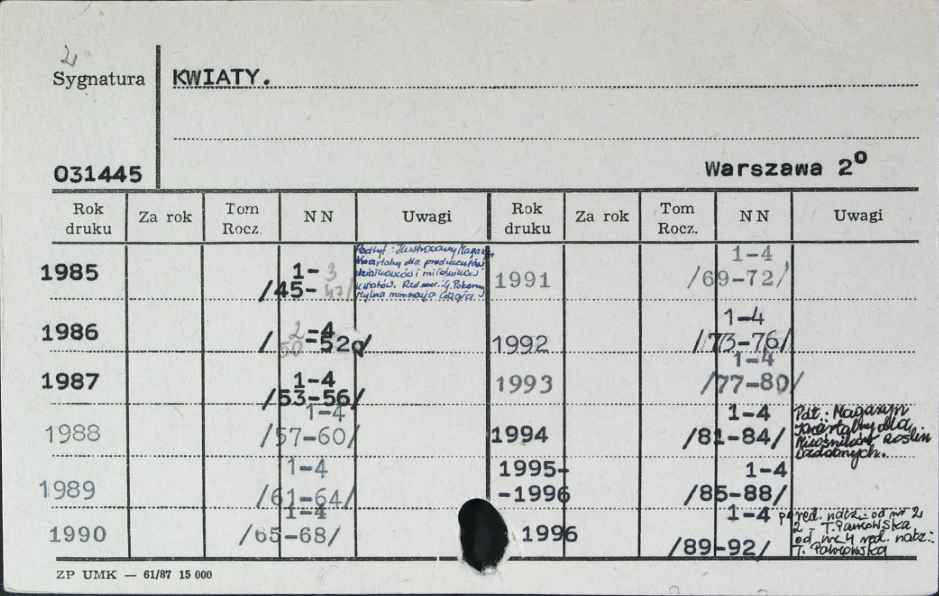 2
Sygnatura KWIATY.
031445 Warszawa 2°
Rok druku Za rok Tom Rocz. NN Uwagi Rok druku Za rok Tom Rocz. NN Uwagi
1985 1-3 /45-47/
Podtyt.: Ilustrowany Magazyn
Kwartalny dla producentów
działkowców i miłośników
kwiatów. Red.
mylna numeracja
1986 2-4 /50-52/
1987 1-4 /53-56/
1988 1-4 /57-60/
1989 1-4 /61-64/
1990 1-4 /65-68/
1991 1-4 /69-72/
1992 1-4 /73-76/
1993 1-4 /77-80/
1994 1-4 /81-84/
Pdt.: Magazyn
kwartalny dla
Miłośników Roślin
Ozdobnych.
1995-
-1996 1-4 /85-88/
1996 1-4 /89-92/
red. nacz.: od nr 2
T. Pawłowska
od nr 4 red. nacz.:
T. Pawłowska
ZP UMK — 61/87 15 000